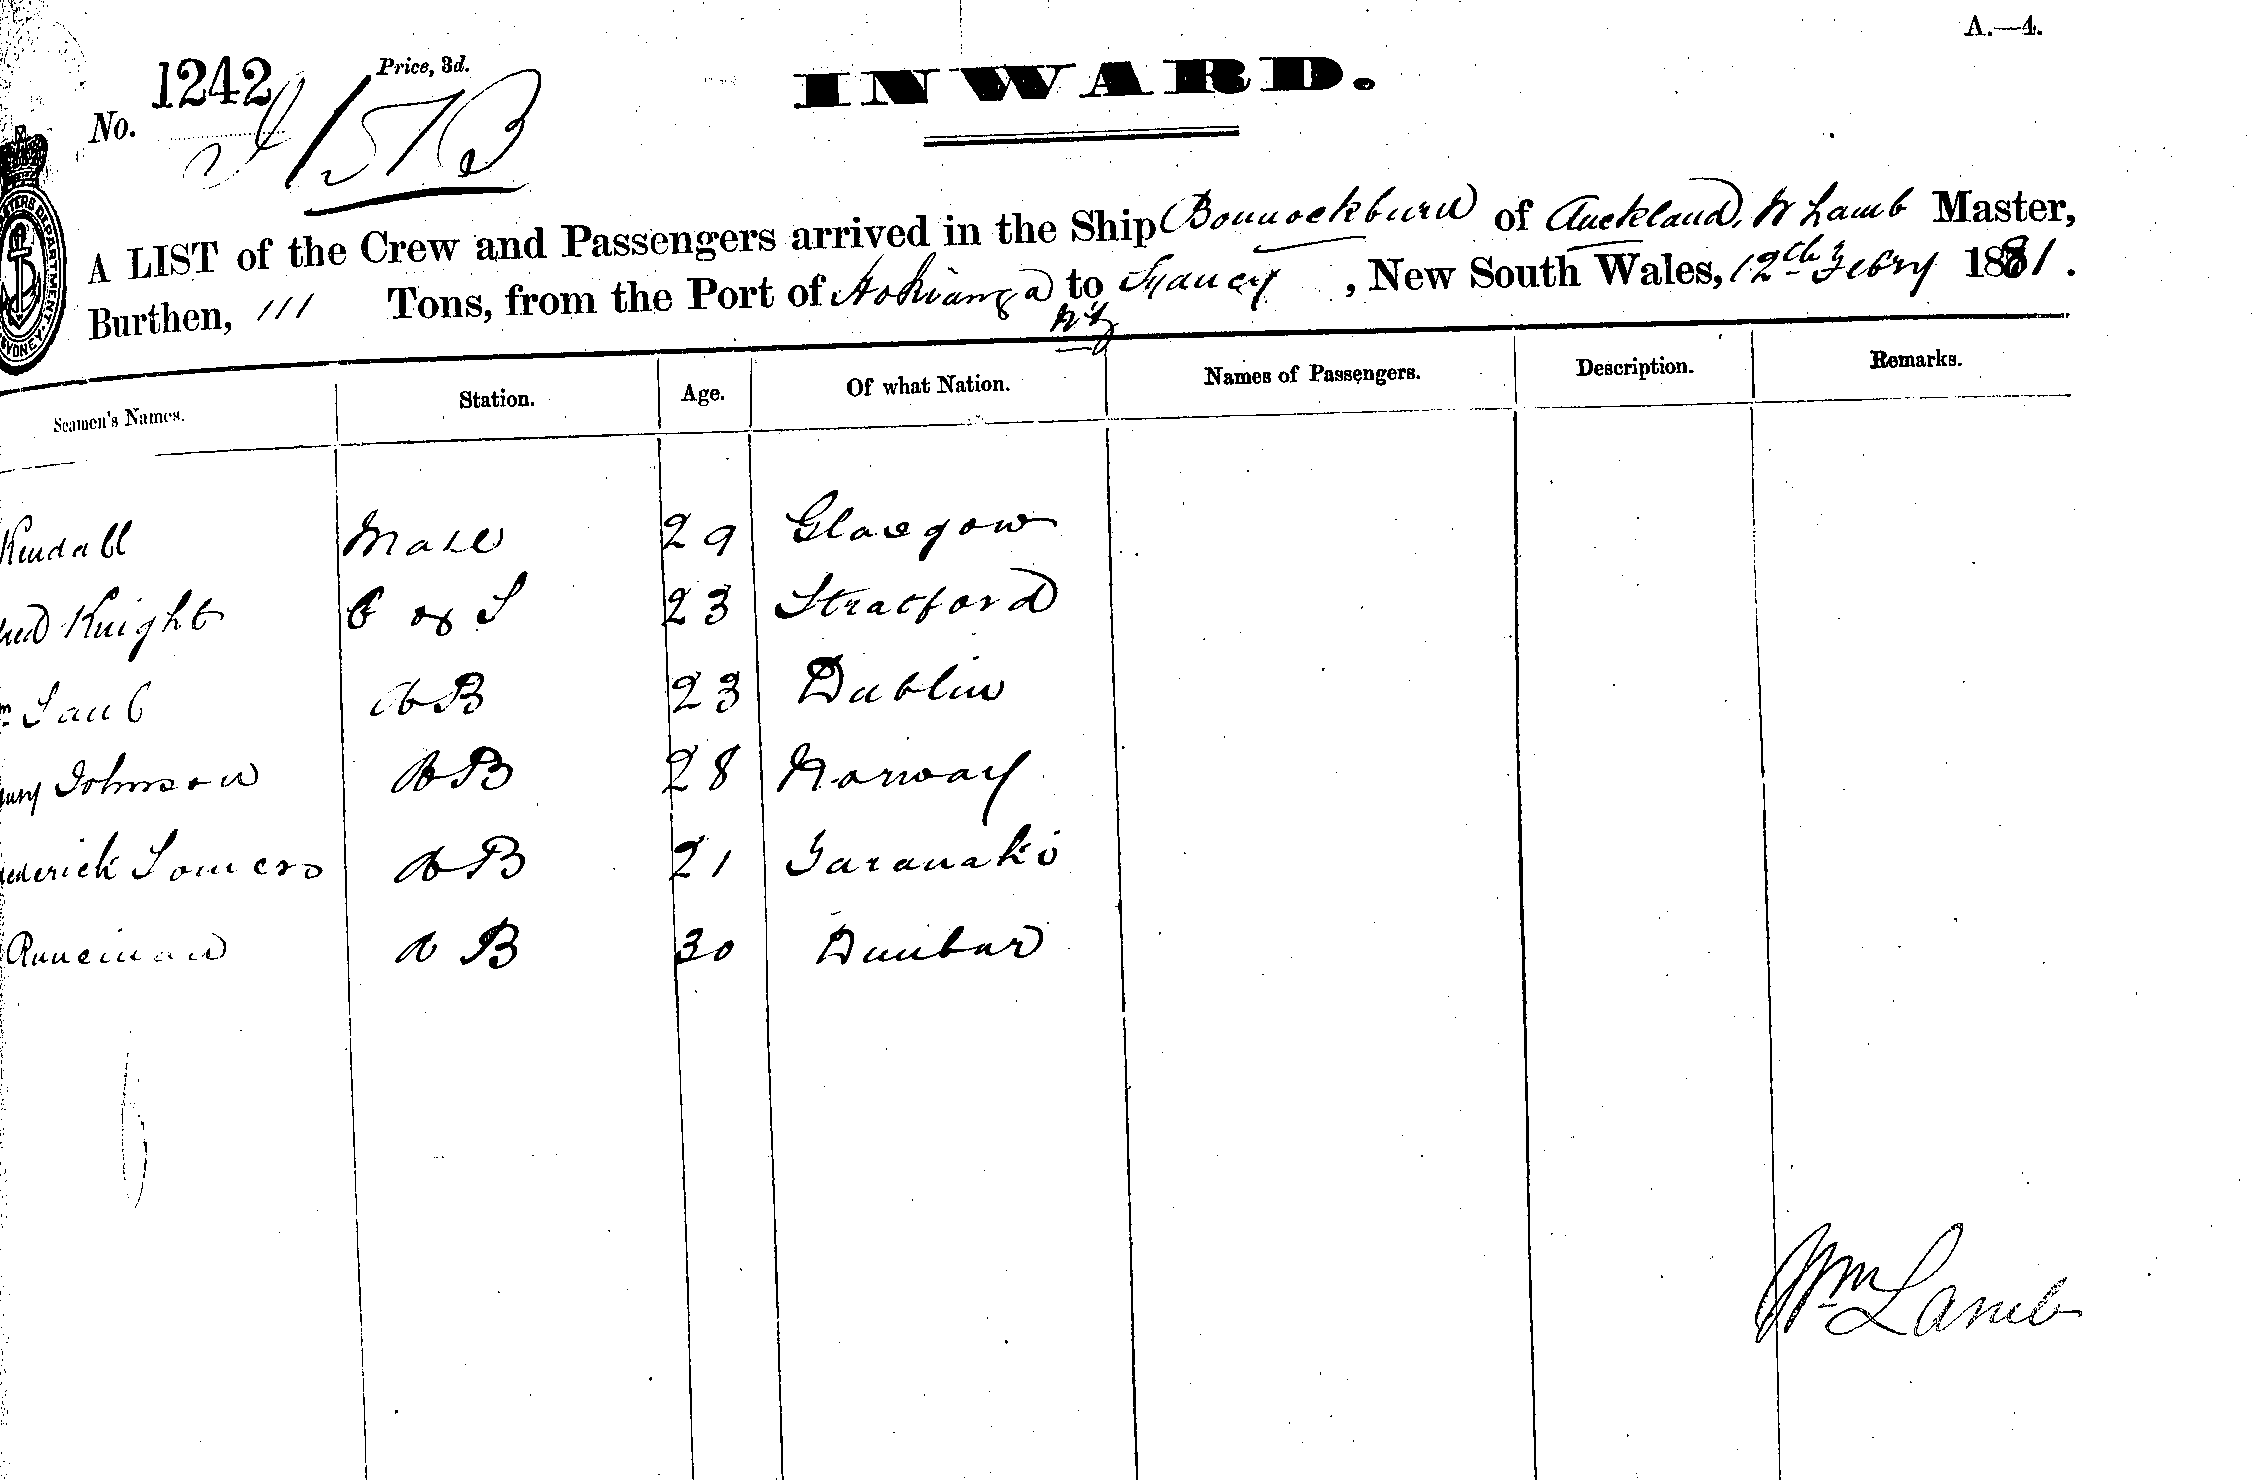 A.—4.
No. 1242 Price, 3d. INWARD.
A LIST of the Crew and Passengers arrived in the Ship Bonnockburn of Auckland, W Lamb Master,
Burthen, 111 Tons, from the Port of Hokianga to Sydney, New South Wales, 12th Febry 1881.
NZ
Seamen's Names. Station. Age. Of what Nation. Names of Passengers. Description. Remarks.
Kendall Mate 29 Glasgow
Knight C & S 23 Stratford
AB 23 Dublin
Johnson AB 28 Norway
ederick Somers AB 21 Taranaki
Runciman AB 30 Dunbar
Wm Lamb